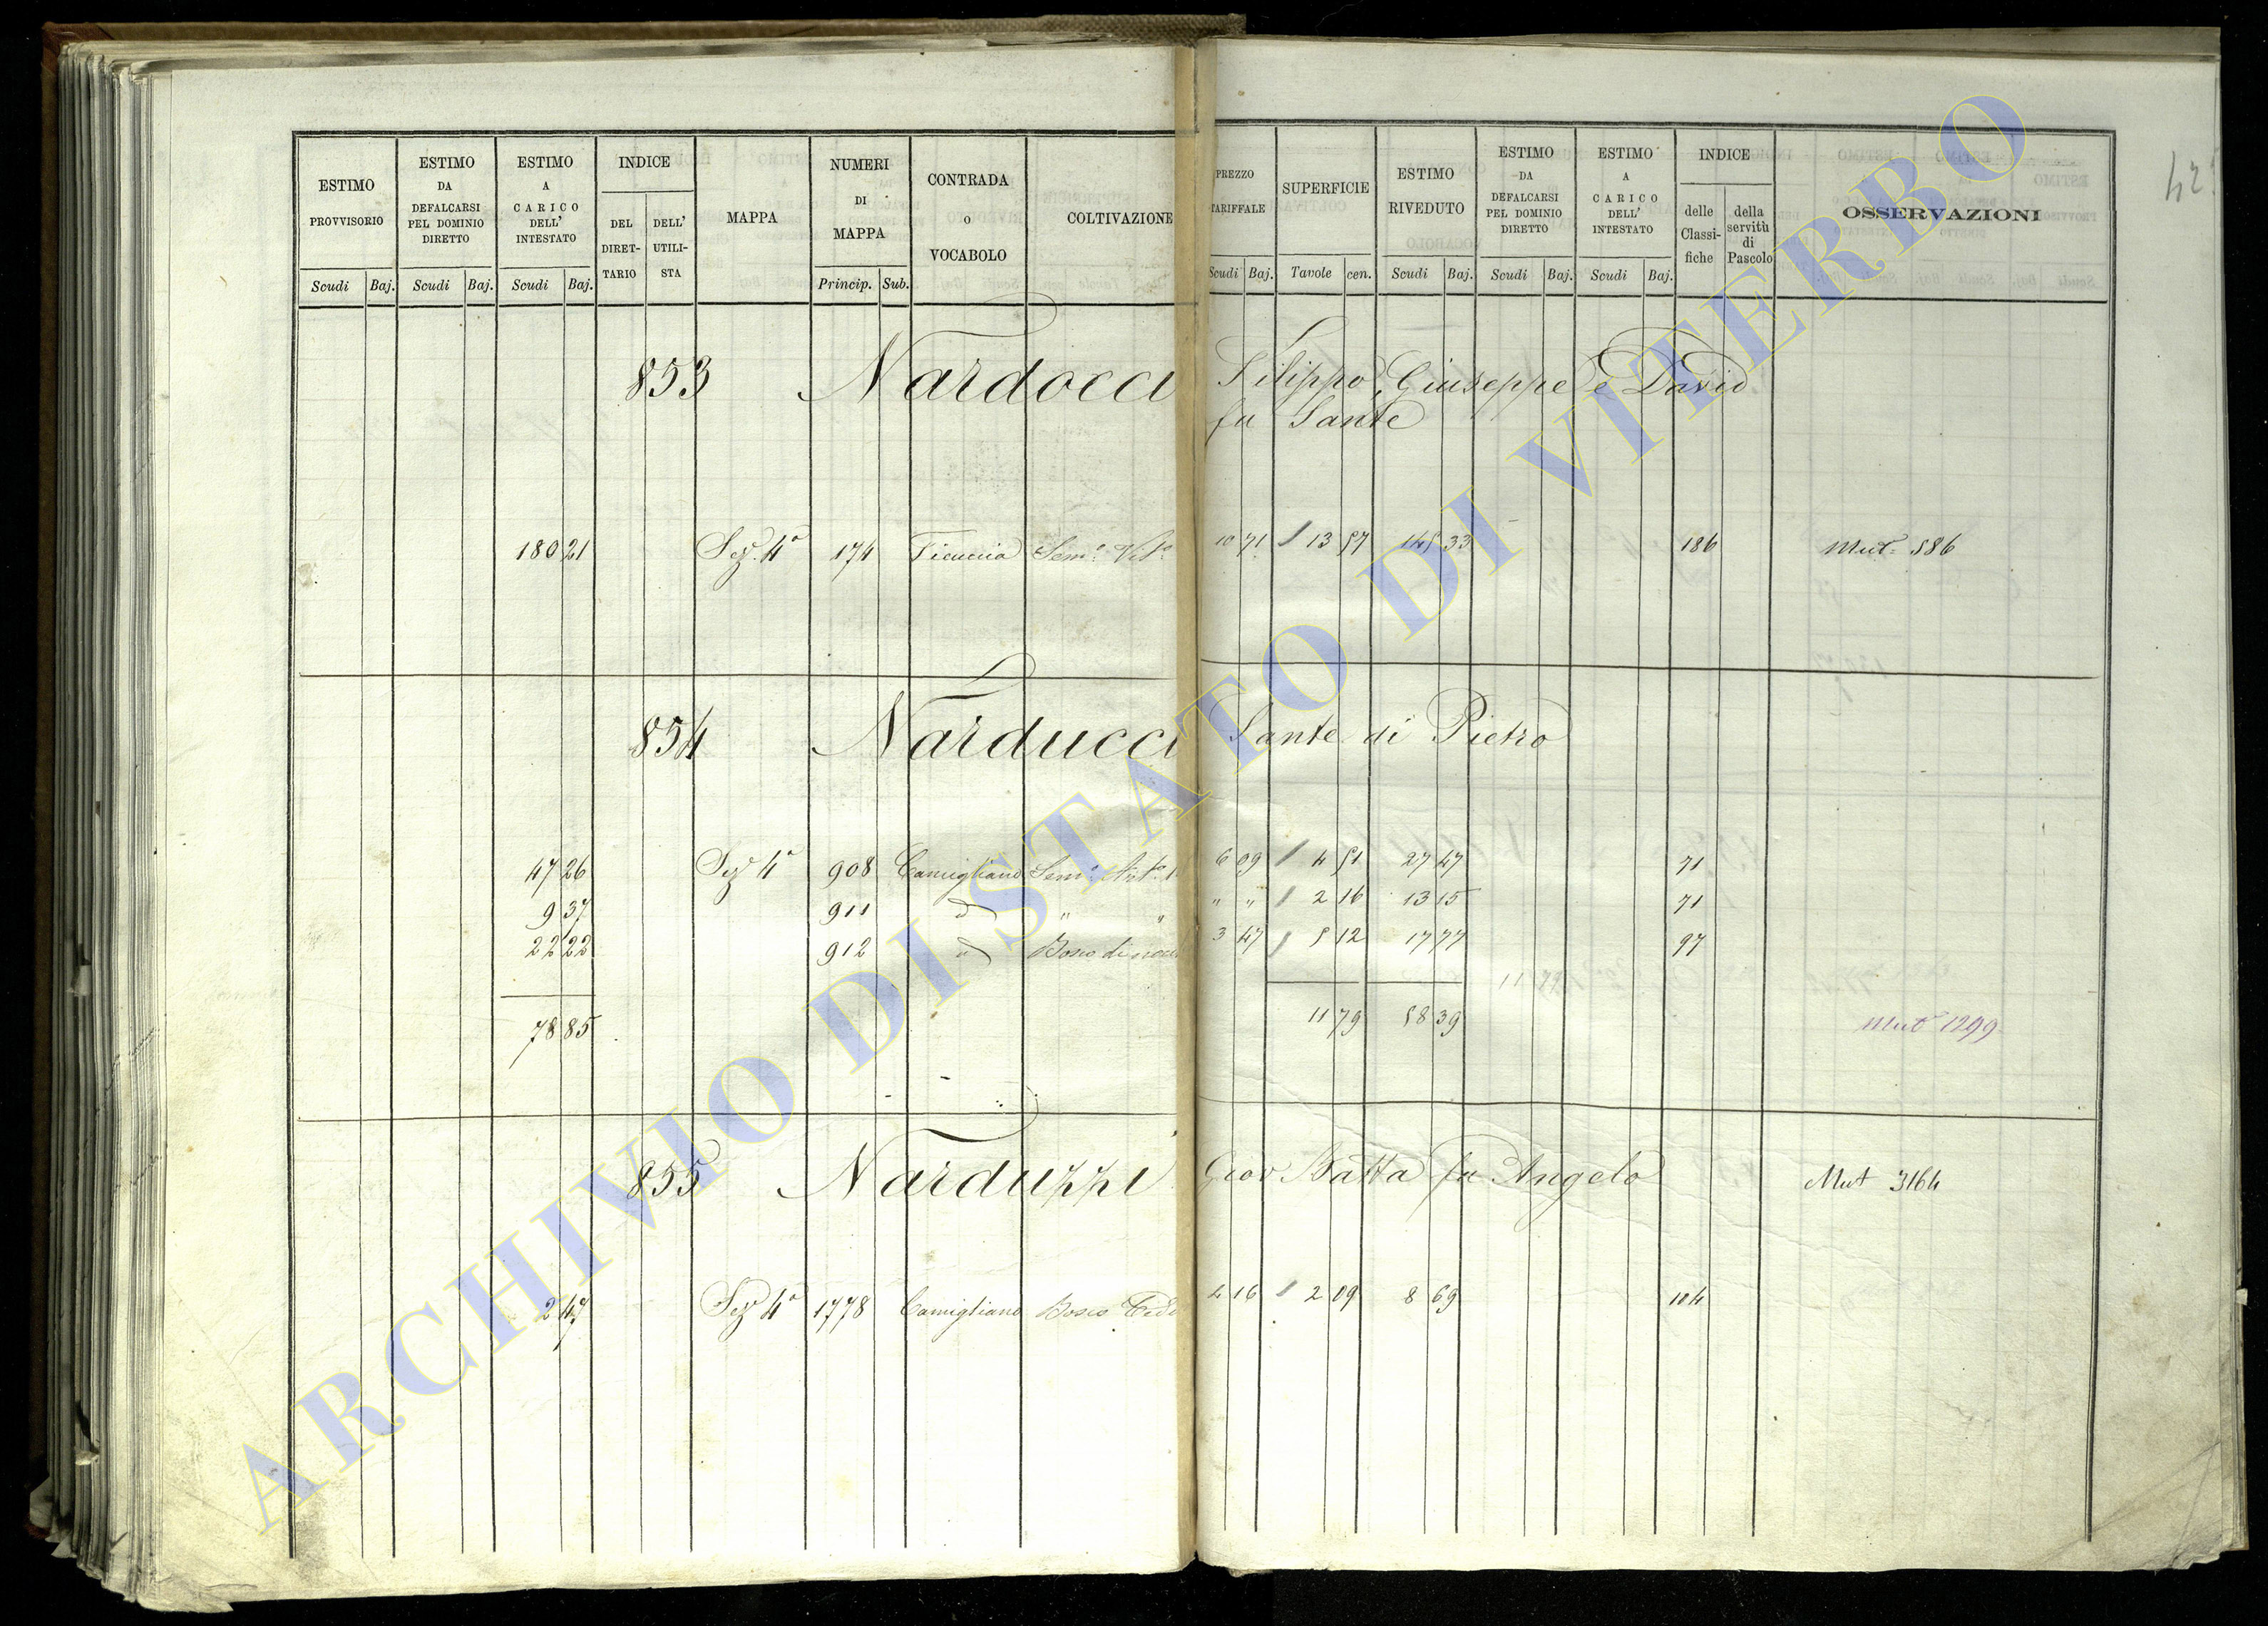 ESTIMO PROVVISORIO Scudi Baj.
ESTIMO DA DEFALCARSI PEL DOMINIO DIRETTO Scudi Baj.
ESTIMO A CARICO DELL' INTESTATO Scudi Baj.
INDICE DEL DIRET-TARIO DELL' UTILI-STA
MAPPA
NUMERI DI MAPPA Princip. Sub.
CONTRADA O VOCABOLO
COLTIVAZIONE
PREZZO TARIFFALE Scudi Baj.
SUPERFICIE Tavole cen.
ESTIMO RIVEDUTO Scudi Baj.
ESTIMO DA DEFALCARSI PEL DOMINIO DIRETTO Scudi Baj.
ESTIMO A CARICO DELL' INTESTATO Scudi Baj.
INDICE delle Classi-fiche della servitù di Pascolo
OSSERVAZIONI
42
853 Nardocci Filippo, Giuseppe e David
fu Sante
180 21 Sez. 4ª 174 Ficuccia Sem.º Vit.º 10 71 13 57 145 33 186 Mut. 586
854 Narducci Sante di Pietro
47 26 Sez 4ª 908 Camigliano Sem.º 6 09 4 51 27 47 71
9 37 911 d " " " " 2 16 13 15 71
22 22 912 d Bosco di 3 47 5 12 17 77 97
78 85 11 79 58 39 Mut 1299
855 Narduzzi Giov Batta fu Angelo Mut 3164
2 47 Sez 4ª 1778 Camigliano Bosco Ced 4 16 2 09 8 69 104
ARCHIVIO DI STATO DI VITERBO